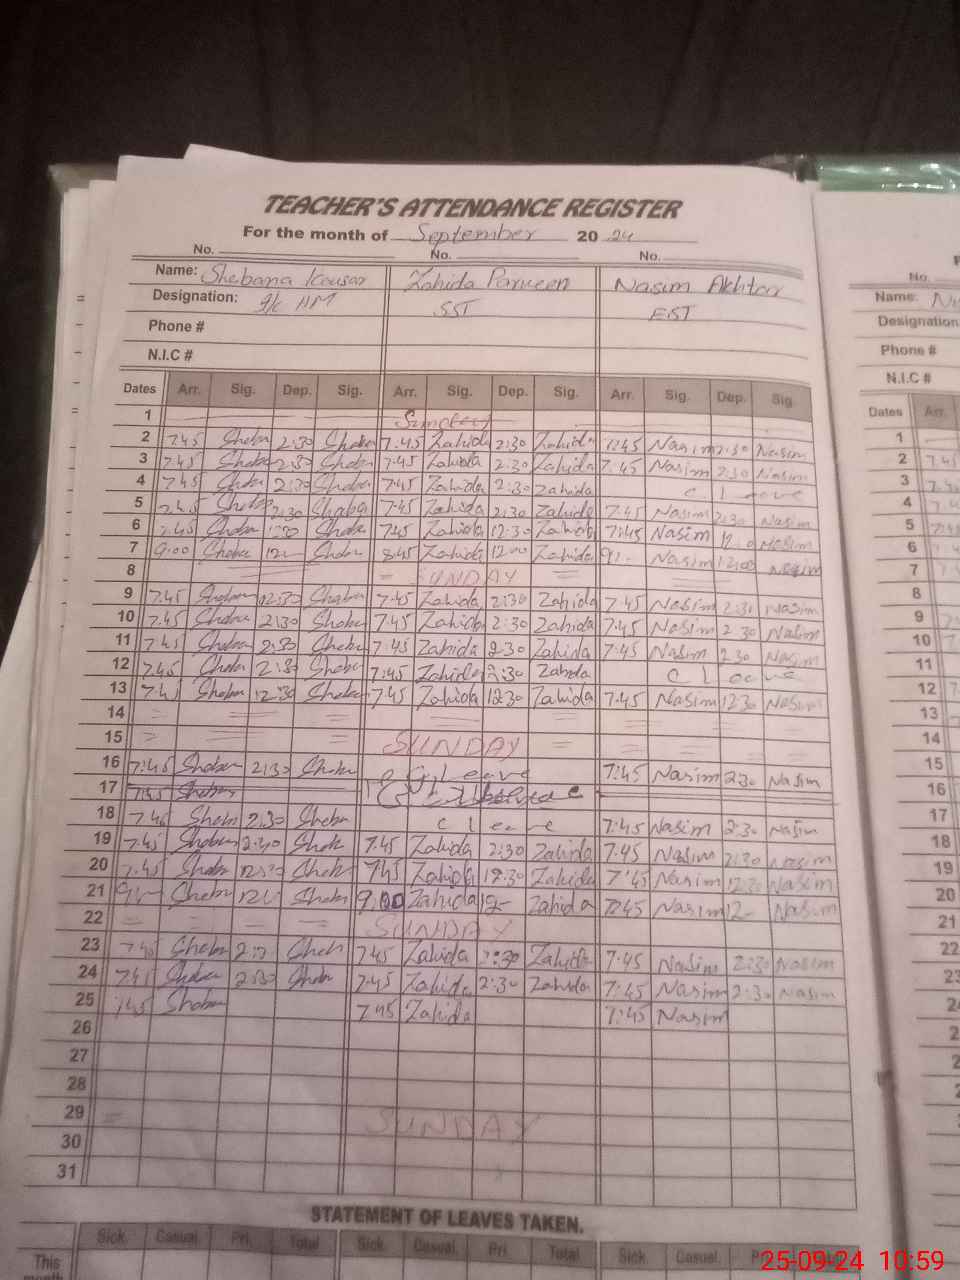 TEACHER'S ATTENDANCE REGISTER
For the month of September 20 24
No. No. No.
Name: Shebana Kousar Zahida Parveen Nasim Akhtar
Designation: I/C HM SST EST
Phone #
N.I.C #
Dates Arr. Sig. Dep. Sig. Arr. Sig. Dep. Sig. Arr. Sig. Dep. Sig.
1 Sunday
2 7.45 Sheba 2:30 Sheba 7:45 Zahida 2:30 Zahida 7:45 Nasim 2:30 Nasim
3 7.45 Sheba 2:30 Sheba 7:45 Zahida 2:30 Zahida 7:45 Nasim 2:30 Nasim
4 7.45 Sheba 2:30 Sheba 7:45 Zahida 2:30 Zahida C. leave
5 7.45 Sheba 2:30 Sheba 7:45 Zahida 2:30 Zahida 7:45 Nasim 2:30 Nasim
6 7.45 Sheba Sheba 7:45 Zahida 12:30 Zahida 7:45 Nasim Nasim
7 9:00 Sheba 12 Sheba 8:45 Zahida 12:00 Zahida Nasim 12:00 Nasim
8 SUNDAY
9 7.45 Sheba 12:30 Sheba 7:45 Zahida 2:30 Zahida 7:45 Nasim 2:30 Nasim
10 7.45 Sheba 2:30 Sheba 7:45 Zahida 2:30 Zahida 7:45 Nasim 2:30 Nasim
11 7.45 Sheba 2:30 Sheba 7:45 Zahida 2:30 Zahida 7:45 Nasim 2:30 Nasim
12 7.45 Sheba 2:30 Sheba 7:45 Zahida Zahida C leave
13 7.45 Sheba 12:30 Sheba 7:45 Zahida 12:30 Zahida 7:45 Nasim 12:30 Nasim
14
15 SUNDAY
16 7:45 Sheba 2:30 Sheba leave 7:45 Nasim 2:30 Nasim
17 7:45 Sheba
18 7.45 Sheba 2:30 Sheba C leave 7:45 Nasim 2:30 Nasim
19 7.45 Sheba 2:30 Sheba 7.45 Zahida 2:30 Zahida 7:45 Nasim 2:30 Nasim
20 7.45 Sheba 12:30 Sheba 7:45 Zahida 12:30 Zahida 7:45 Nasim 12:30 Nasim
21 Sheba Sheba 9:00 Zahida 12- Zahida 7:45 Nasim 12- Nasim
22 SUNDAY
23 7.45 Sheba Sheba 7:45 Zahida 2:30 Zahida 7:45 Nasim 2:30 Nasim
24 7.45 Sheba 2:30 Sheba 7:45 Zahida 2:30 Zahida 7:45 Nasim 2:30 Nasim
25 7:45 Sheba 7:45 Zahida 7:45 Nasim
26
27
28
29 SUNDAY
30
31
STATEMENT OF LEAVES TAKEN.
Sick. Casual. Pri. Total Sick. Casual. Pri. Total Sick. Casual.
This month
No.
Name:
Designation
Phone #
N.I.C #
Dates Arr.
1
2 7.45
3
4
5
6
7
8
9
10
11
12
13
14
15
16
17
18
19
20
21
22
25-09-24 10:59